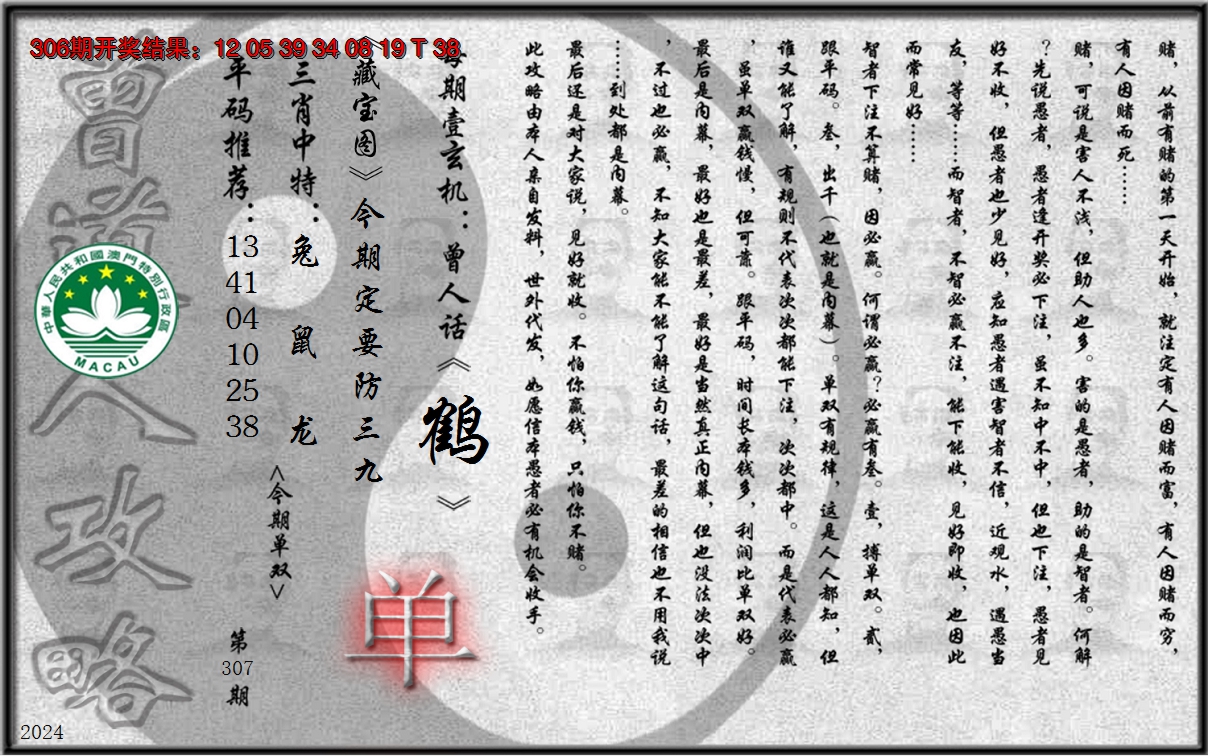 306期开奖结果：12 05 39 34 08 19 T 38
赌，从前有赌的第一天开始，就注定有人因赌而富，有人因赌而穷，
有人因赌而死……
赌，可说是害人不浅，但助人也多。害的是愚者，助的是智者。何解
？先说愚者，愚者逢开奖必下注，虽不知中不中，但也下注，愚者见
好不收，但愚者也少见好，应知愚者遇害智者不信，近观水，遇愚当
友，等等……而智者，不智必赢不注，能下能收，见好即收，也因此
而常见好……
智者下注不算赌，因必赢。何谓必赢？必赢有叁。壹，搏单双。贰，
跟平码。叁，出千（也就是内幕）。单双有规律，这是人人都知，但
谁又能了解，有规则不代表次次都能下注，次次都中。而是代表必赢
，虽单双赢钱慢，但可靠。跟平码，时间长本钱多，利润比单双好。
最后是内幕，最好也是最差，最好是当然真正内幕，但也没法次次中
，不过也必赢，不知大家能不能了解这句话，最差的相信也不用我说
……到处都是内幕。
最后还是对大家说，见好就收。不怕你赢钱，只怕你不赌。
此攻略由本人亲自发料，世外代发，如愿信本愚者必有机会收手。
每期壹玄机：曾人话《鹤》
《藏宝图》今期定要防三九
三肖中特：兔 鼠 龙
<今期单双>
单
平码推荐：13 41 04 10 25 38
第307期
曾道人攻略
中華人民共和國澳門特別行政區
MACAU
2024